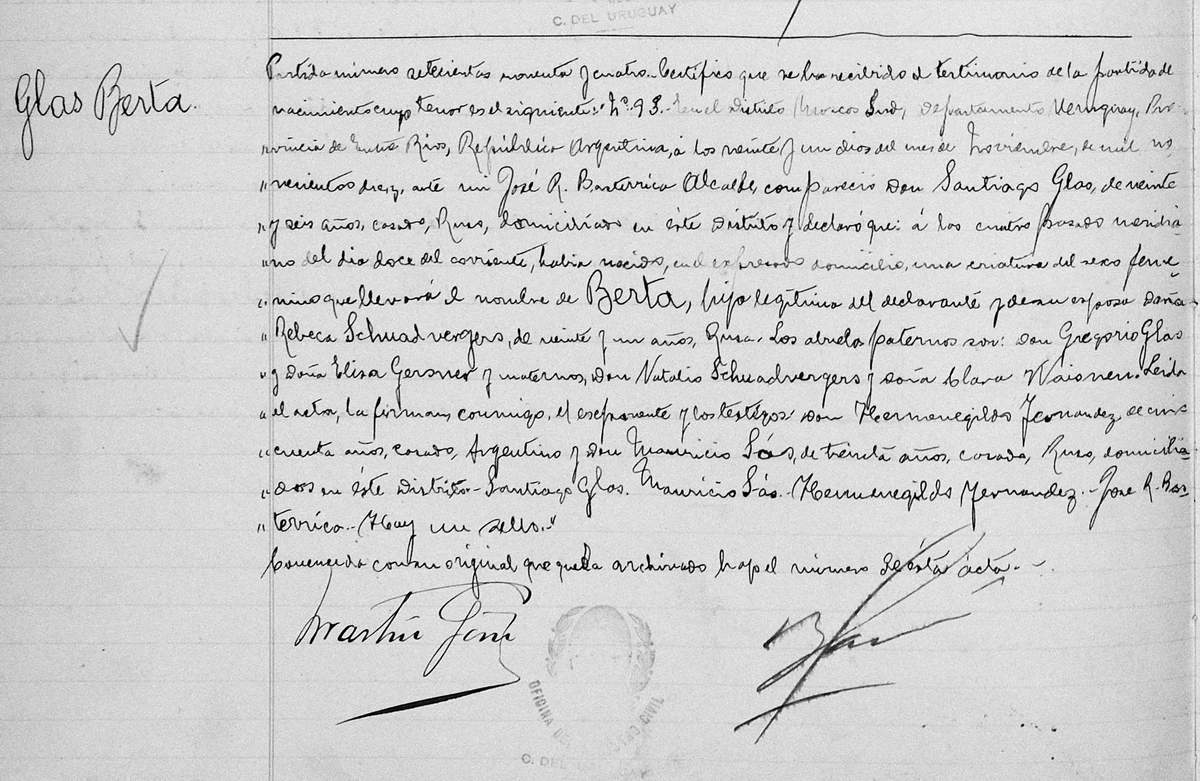 C. DEL URUGUAY
Glas Berta
Partida número setecientos noventa y cuatro. Certifico que se ha recibido el testimonio de la partida de
nacimiento cuyo tenor es el siguiente: "Nº 93. En el Distrito Moscas Sud, Departamento Uruguay, Pro-
vincia de Entre Rios, República Argentina, á los veinte y un dias del mes de Noviembre, de mil no-
" vecientos diez, ante mi José R. Basterrica Alcalde, compareció Don Santiago Glas, de veinte
" y seis años, casado, Ruso, domiciliado en éste Distrito y declaró que: á las cuatro pasado meridia-
" no del dia doce del corriente, habia nacido, en el expresado domicilio, una criatura del sexo feme-
" nino que llevará el nombre de Berta, hija legítima del declarante y de su esposa doña
" Rebeca Schuadvergers, de veinte y un años, Rusa. Los abuelos paternos son: don Gregorio Glas
" y Doña Elisa Gersner y maternos, Don Natalio Schuadvergers y doña Clara Waisnen. Leida
" el acta, la firman, conmigo, el exponente y los testigos: don Hermenegildo Fernandez de cin-
" cuenta años, casado, Argentino y Don Mauricio Sás, de treinta años, casado, Ruso, domicilia-
" dos en éste Distrito. Santiago Glas. Mauricio Sás. Hermenegildo Fernandez. José R. Bas-
" terrica. Hay un sello."
Convenida con su original que queda archivado bajo el número de ésta acta.
Martín
OFICINA DEL REGISTRO CIVIL
C. DEL URUGUAY